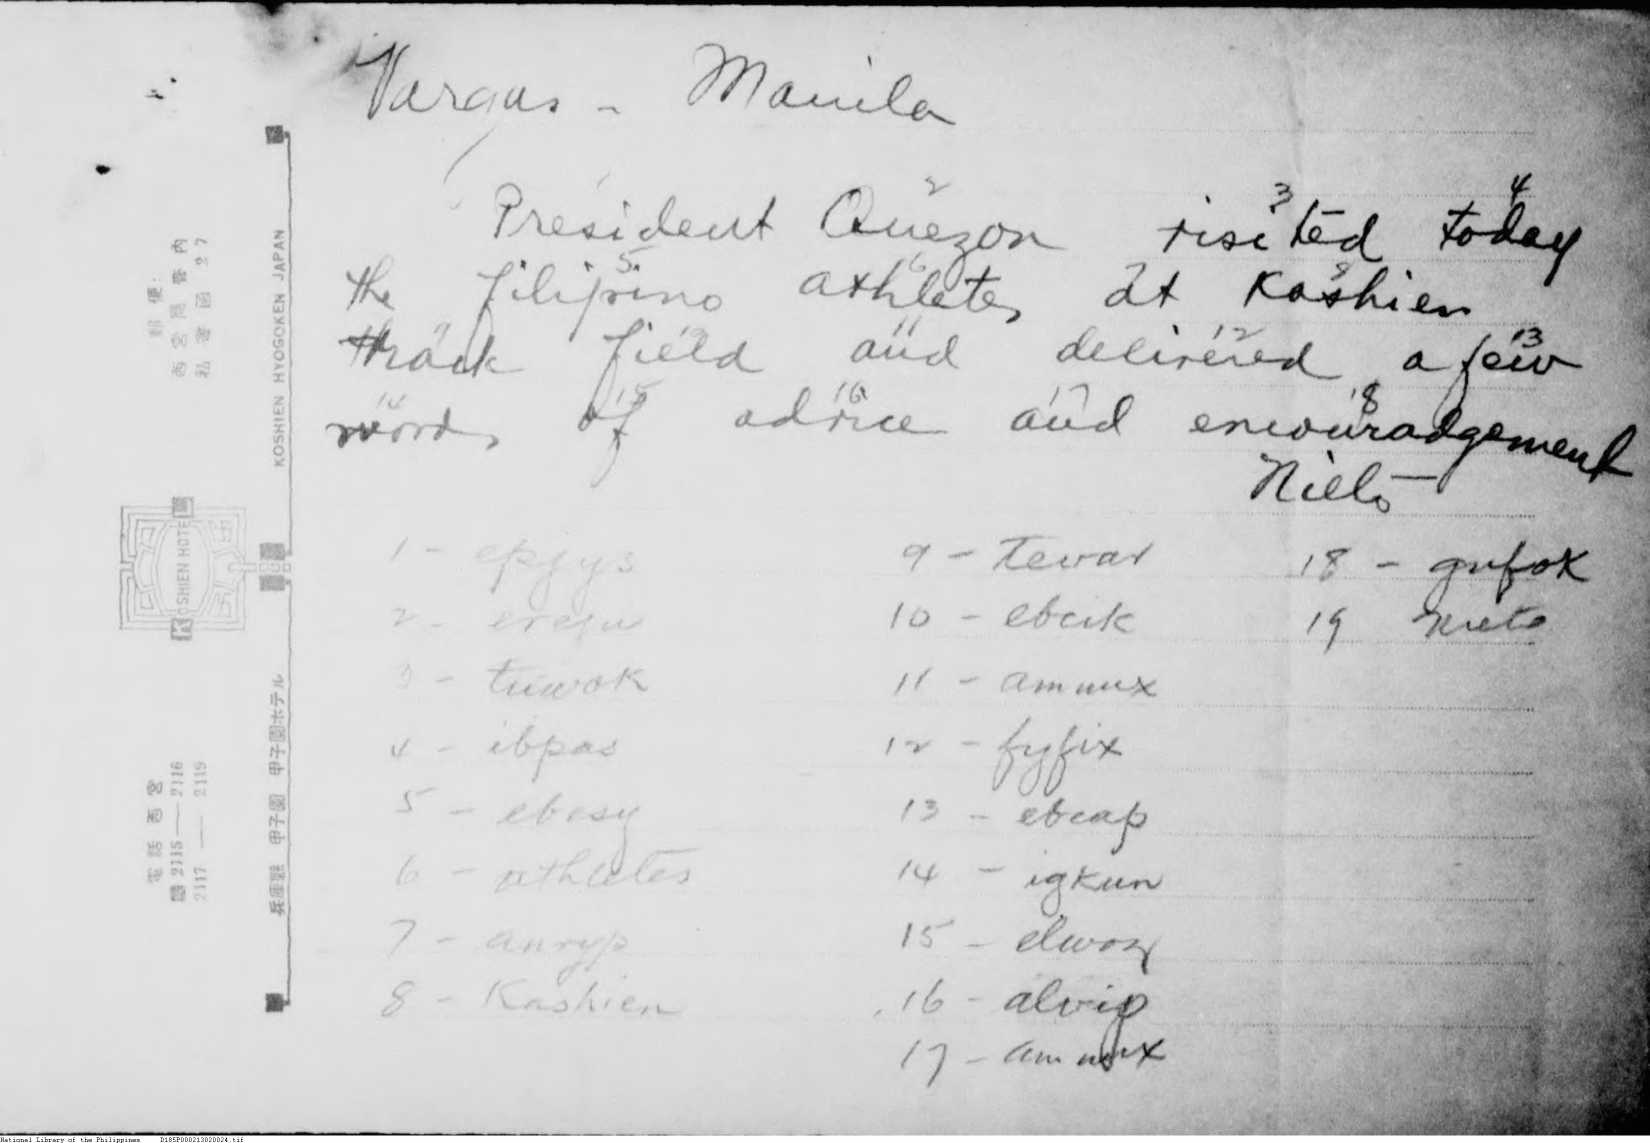 Vargas - Manila
1 2 3 4
President Quezon visited today
5 6 7 8
the filipino athletes at Kashien
9 10 11 12 13
track field and delivered a few
14 15 16 17 18
words of advice and encouradgement
Nieto
1 - epjys 9 - tewar 18 - gnfok
2 - erezu 10 - ebcik 19 Nieto
3 - tuwok 11 - ammux
4 - ibpas 12 - fyfix
5 - ebesy 13 - ebcap
6 - athletes 14 - igkun
7 - anryp 15 - elwoz
8 - Kashien 16 - alvip
17 - ammux
KOSHIEN HYOGOKEN JAPAN
KOSHIEN HOTEL
兵庫縣 甲子園 甲子園ホテル
郵便:
西宮局管內
私書函 27
電話西宮
2115 — 2116
2117 — 2119
National Library of the Philippines D185P000213020024.tif